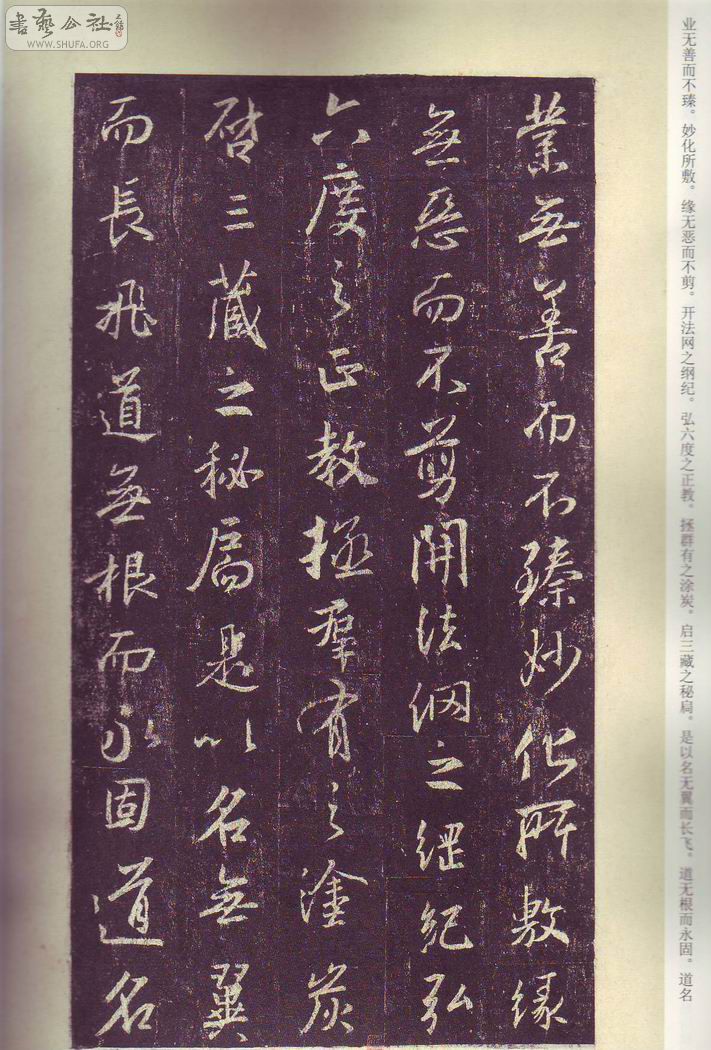 書藝公社
WWW.SHUFA.ORG
业无善而不臻。妙化所敷。缘无恶而不剪。开法网之纲纪。弘六度之正教。拯群有之涂炭。启三藏之秘扃。是以名无翼而长飞。道无根而永固。道名
業無善而不臻妙化所敷緣
無惡而不剪開法網之綱紀弘
六度之正教拯羣有之塗炭
啓三藏之秘扃是以名無翼
而長飛道無根而永固道名